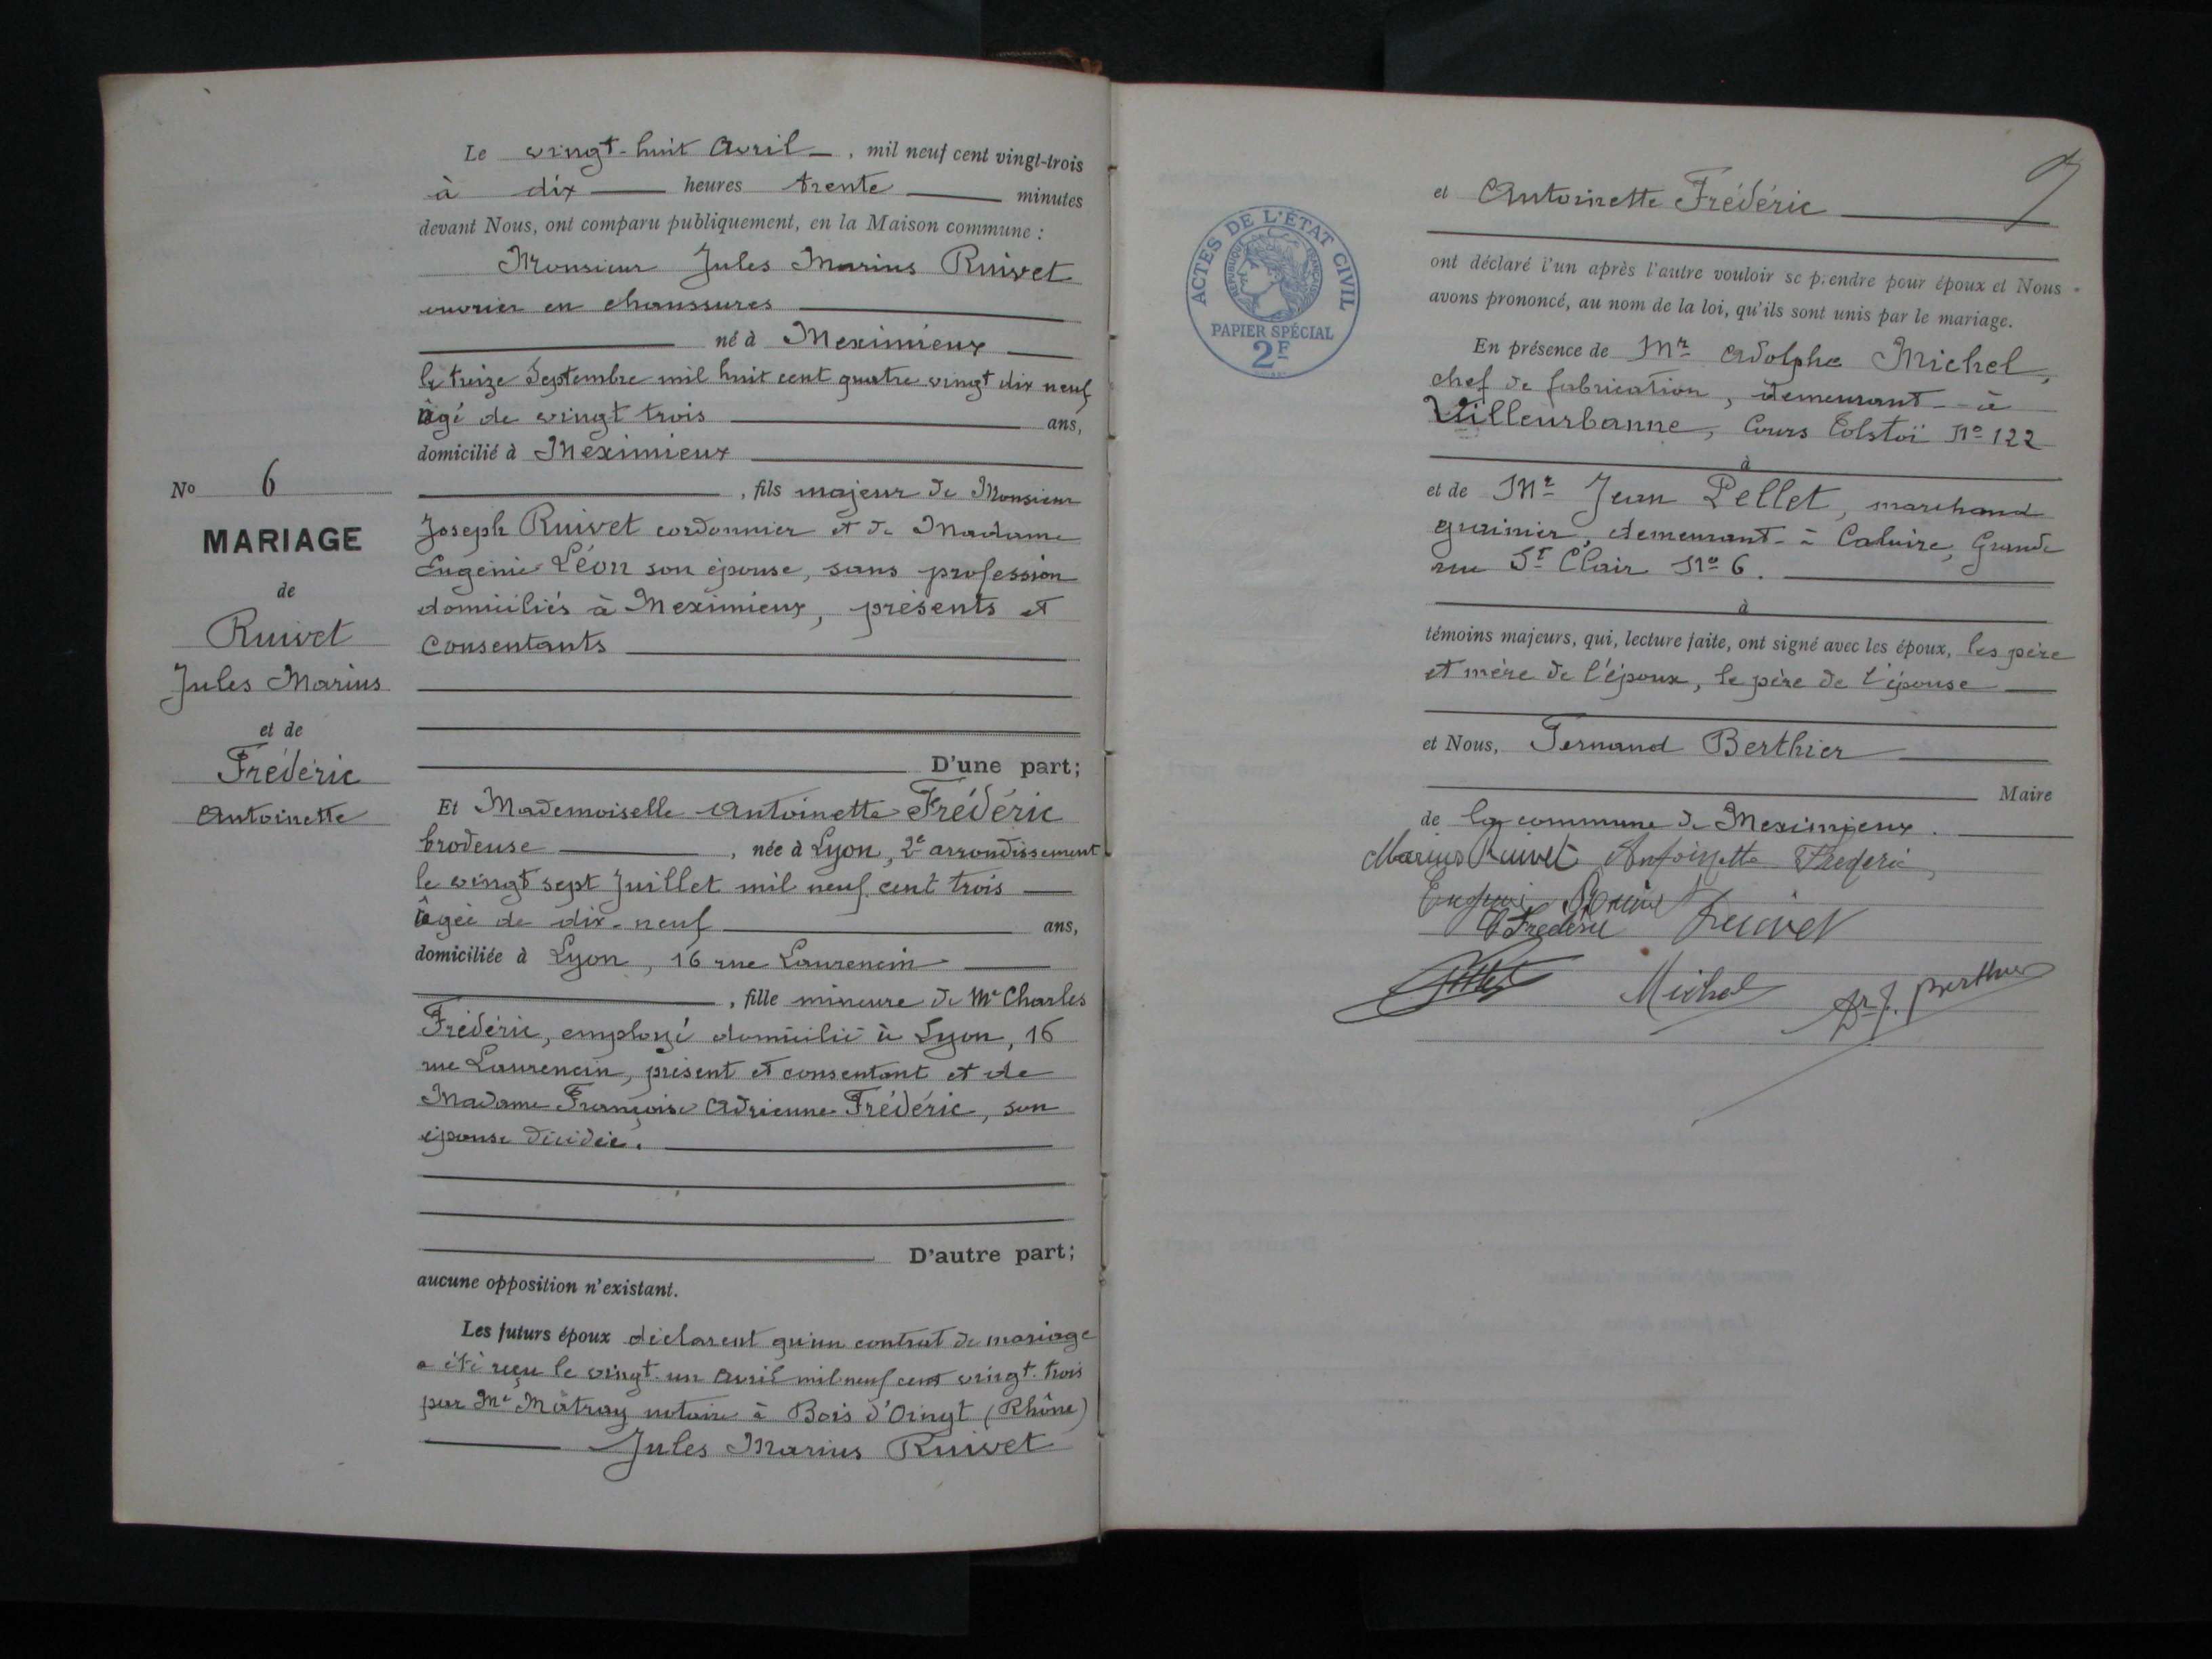 Le vingt-huit Avril, mil neuf cent vingt-trois
à dix heures trente minutes
devant Nous, ont comparu publiquement, en la Maison commune :
Monsieur Jules Marius Ruivet
ouvrier en chaussures
né à Meximieux
le treize Septembre mil huit cent quatre vingt dix neuf
âgé de vingt trois ans,
domicilié à Meximieux
, fils majeur de Monsieur
Joseph Ruivet cordonnier et de Madame
Eugénie Léon son épouse, sans profession
domiciliés à Meximieux, présents et
consentants
D'une part;
No 6
MARIAGE
de
Ruivet
Jules Marius
et de
Frédéric
Antoinette
Et Mademoiselle Antoinette Frédéric
brodeuse, née à Lyon, 2e arrondissement
le vingt sept Juillet mil neuf cent trois
âgée de dix-neuf ans,
domiciliée à Lyon, 16 rue Laurencin
, fille mineure de Mr Charles
Frédéric, employé domicilié à Lyon, 16
rue Laurencin, présent et consentant et de
Madame Françoise Adrienne Frédéric, son
épouse décédée.
D'autre part;
aucune opposition n'existant.
Les futurs époux déclarent qu'un contrat de mariage
a été reçu le vingt-un Avril mil neuf cent vingt-trois
par Me Mâtray notaire à Bois d'Oingt (Rhône)
Jules Marius Ruivet
et Antoinette Frédéric
ACTES DE L'ÉTAT CIVIL
RÉPUBLIQUE FRANÇAISE
PAPIER SPÉCIAL
2F
ont déclaré l'un après l'autre vouloir se prendre pour époux et Nous
avons prononcé, au nom de la loi, qu'ils sont unis par le mariage.
En présence de Mr Adolphe Michel,
chef de fabrication, demeurant à
Villeurbanne, Cours Tolstoï No 122
à
et de Mr Jean Pellet, marchand
grainier, demeurant à Caluire, Grande
rue St Clair No 6.
à
témoins majeurs, qui, lecture faite, ont signé avec les époux, les père
et mère de l'époux, le père de l'épouse
et Nous, Fernand Berthier
Maire
de la commune de Meximieux.
Marius Ruivet Antoinette Frederic
C Frédéric Ruivet
Michel Dr F. Berthier